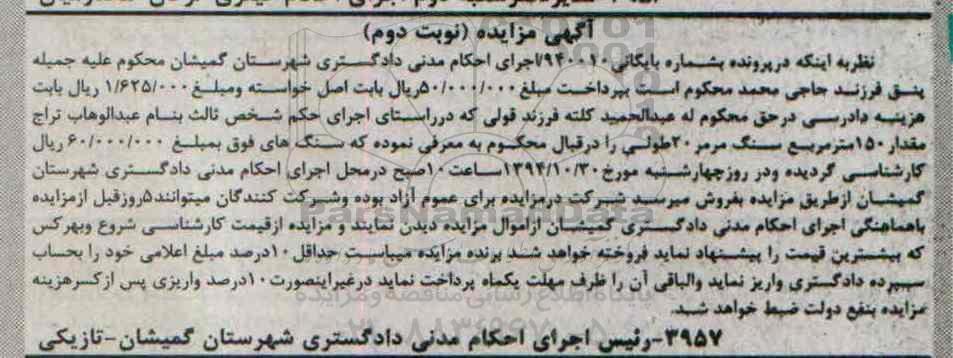 آگهی مزایده (نوبت دوم)
نظربه اینکه درپرونده بشماره بایگانی۹۴۰۰۱۰/اجرای احکام مدنی دادگستری شهرستان گمیشان محکوم علیه جمیله
پنق فرزند حاجی محمد محکوم است بپرداخت مبلغ ۵۰/۰۰۰/۰۰۰ریال بابت اصل خواسته ومبلغ ۱/۶۲۵/۰۰۰ ریال بابت
هزینه دادرسی درحق محکوم له عبدالحمید کلته فرزند قولی که درراستای اجرای حکم شخص ثالث بنام عبدالوهاب تراج
مقدار ۱۵۰مترمربع سنگ مرمر ۲۰طولی را درقبال محکوم به معرفی نموده که سنگ های فوق بمبلغ ۶۰/۰۰۰/۰۰۰ ریال
کارشناسی گردیده ودر روزچهارشنبه مورخ۱۳۹۴/۱۰/۳۰ساعت۱۰صبح درمحل اجرای احکام مدنی دادگستری شهرستان
گمیشان ازطریق مزایده بفروش میرسد شرکت درمزایده برای عموم آزاد بوده وشرکت کنندگان میتوانند۵روزقبل ازمزایده
باهماهنگی اجرای احکام مدنی دادگستری گمیشان ازاموال مزایده دیدن نمایند و مزایده ازقیمت کارشناسی شروع وبهرکس
که بیشترین قیمت را پیشنهاد نماید فروخته خواهد شد برنده مزایده میبایست حداقل ۱۰درصد مبلغ اعلامی خود را بحساب
سپرده دادگستری واریز نماید والباقی آن را ظرف مهلت یکماه پرداخت نماید درغیراینصورت۱۰درصد واریزی پس ازکسرهزینه
مزایده بنفع دولت ضبط خواهد شد.
۳۹۵۷-رئیس اجرای احکام مدنی دادگستری شهرستان گمیشان-تازیکی